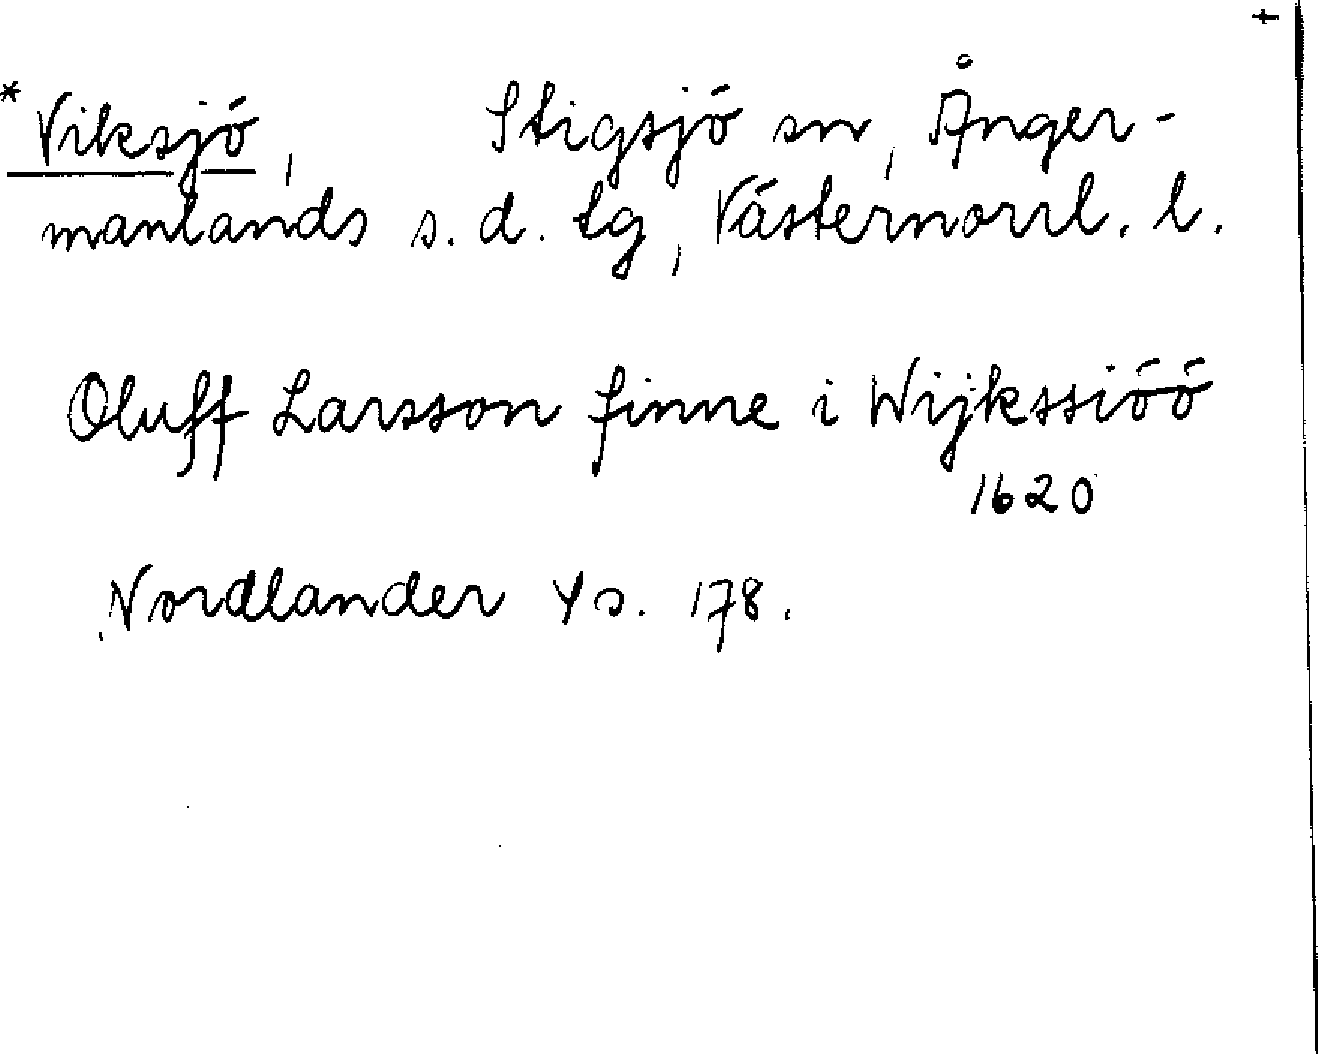 +
* Viksjö, Stigsjö sn, Ånger-
manlands s. d. tg, Västernorrl. l.
Oluff Larsson finne i Wijkssiöö
1620
Nordlander Y s. 178.